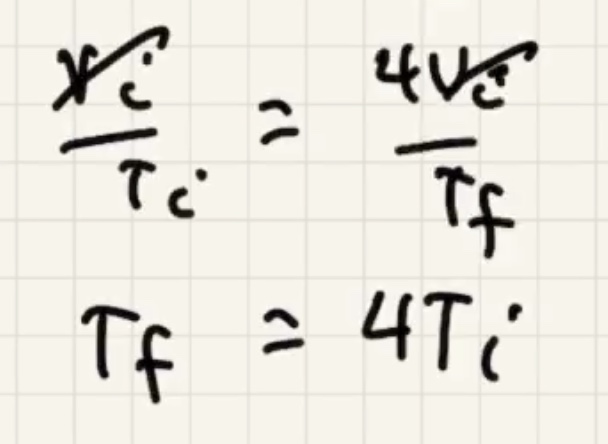 V_i / T_i = 4V_i / T_f
T_f = 4T_i